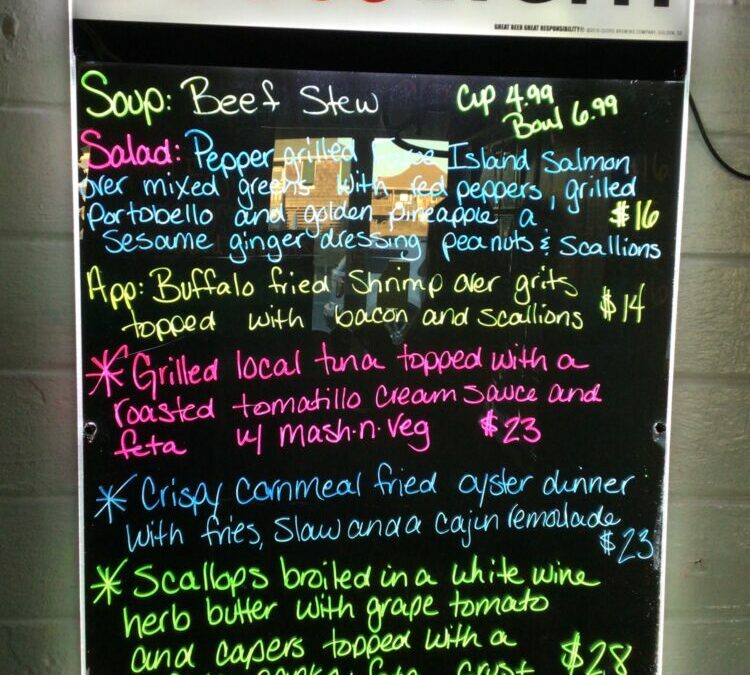 GREAT BEER GREAT RESPONSIBILITY®
Soup: Beef Stew Cup 4.99
Bowl 6.99
Salad: Pepper grilled Island Salmon
over mixed greens with red peppers, grilled
Portobello and golden pineapple a $16
Sesame ginger dressing peanuts & scallions
App: Buffalo fried Shrimp over grits
topped with bacon and scallions $14
* Grilled local tuna topped with a
roasted tomatillo cream sauce and
feta w/ mash-n-veg $23
* Crispy cornmeal fried oyster dinner
with fries, slaw and a cajun remoulade
$23
* Scallops broiled in a white wine
herb butter with grape tomato
and capers topped with a $28
panko feta crust